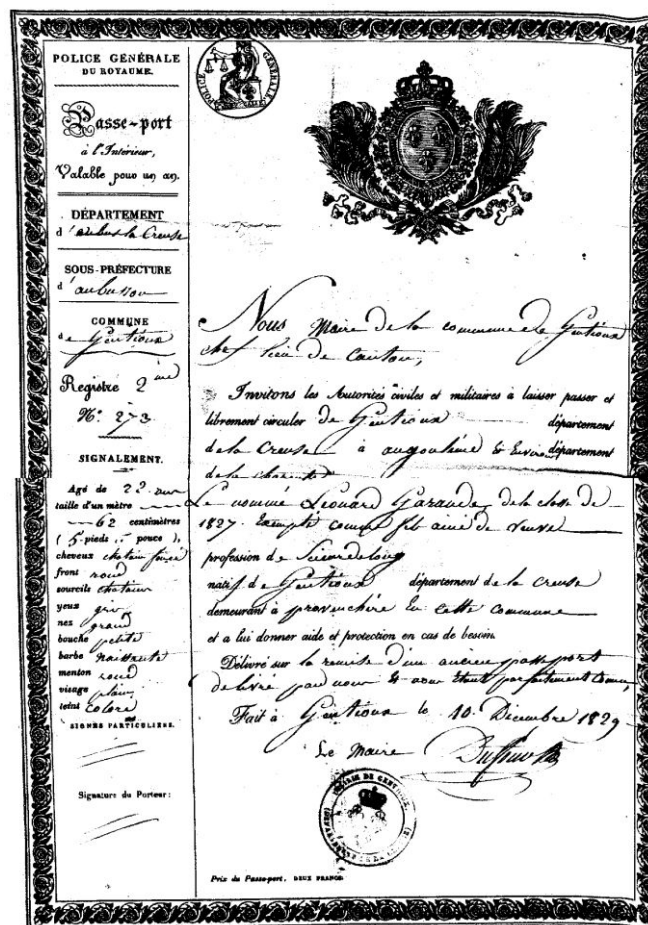 POLICE GÉNÉRALE
DU ROYAUME.
Passe-port
à l'Intérieur,
Valable pour un an.
DÉPARTEMENT
d la Creuse
SOUS-PRÉFECTURE
d'aubusson
COMMUNE
de Gentioux
Registre 2 ème
N.° 273
SIGNALEMENT.
Agé de 22 ans
taille d'un mètre
62 centimètres
(5 pieds pouce),
cheveux chatain foncé
front rond
sourcils chatain
yeux gris
nez grand
bouche petite
barbe naissante
menton rond
visage plein
teint coloré
SIGNES PARTICULIERS.
Signature du Porteur:
POLICE GÉNÉRALE
Nous Maire de la commune de Gentioux
chef lieu de Canton,
Invitons les Autorités civiles et militaires à laisser passer et
librement circuler de Gentioux département
de la Creuse à angoulême & Environ département
de la charente
Le nommé Léonard Garaude de la classe de
1827. Exempté comme fils ainé de veuve
profession de Scieur de long
natif de Gentioux département de la Creuse
demeurant à provenchère En cette commune
et a lui donner aide et protection en cas de besoin.
Délivré sur la remise d'un ancien passeport
délivré par nous & nous étant parfaitement connu,
Fait à Gentioux le 10. Décembre 1829
Le Maire
MAIRIE DE GENTIOUX
Prix du Passe-port, DEUX FRANCS.